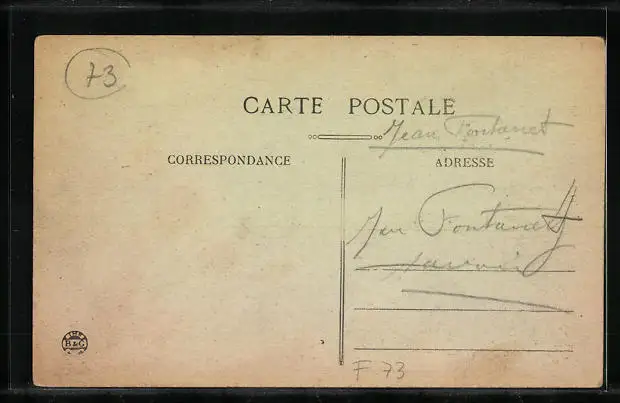 73
CARTE POSTALE
Jean Fontanet
CORRESPONDANCE
ADRESSE
Jean Fontanet
B&G
F 73